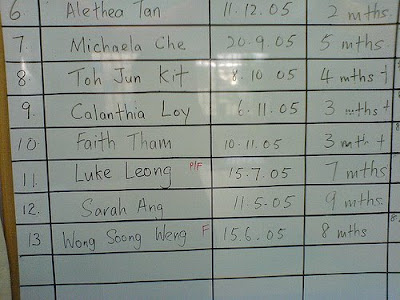 6. Alethea Tan 11.12.05 2 mths.
7. Michaela Che 20.9.05 5 mths.
8. Toh Jun Kit 8.10 05 4 mths +
9. Calanthia Loy 6.11.05 3 mths +
10. Faith Tham 10.11.05 3 mths +
11. Luke Leong P/F 15.7.05 7 mths
12. Sarah Ang 11.5.05 9 mths.
13 Wong Soong Weng F 15.6.05 8 mths